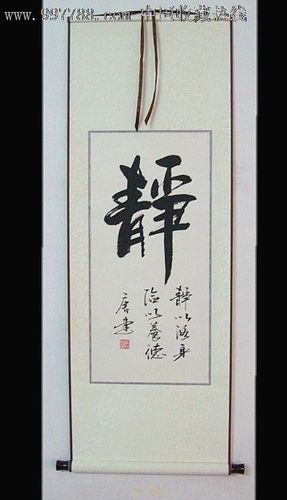 www.997788.com 中国收藏热线
靜
靜以修身
儉以養德